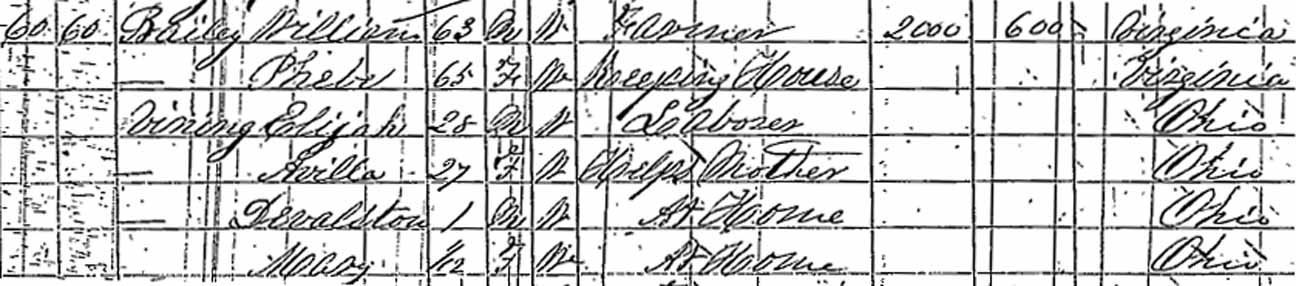 60 60 Bailey William 63 M W Farmer 2000 600 Virginia
— Phebe 65 F W Keeping House Virginia
Vining Elijah 28 M W Laborer Ohio
— Avilla 27 F W Helps Mother Ohio
— Devalston 1 M W At Home Ohio
Mary /12 F W At Home Ohio